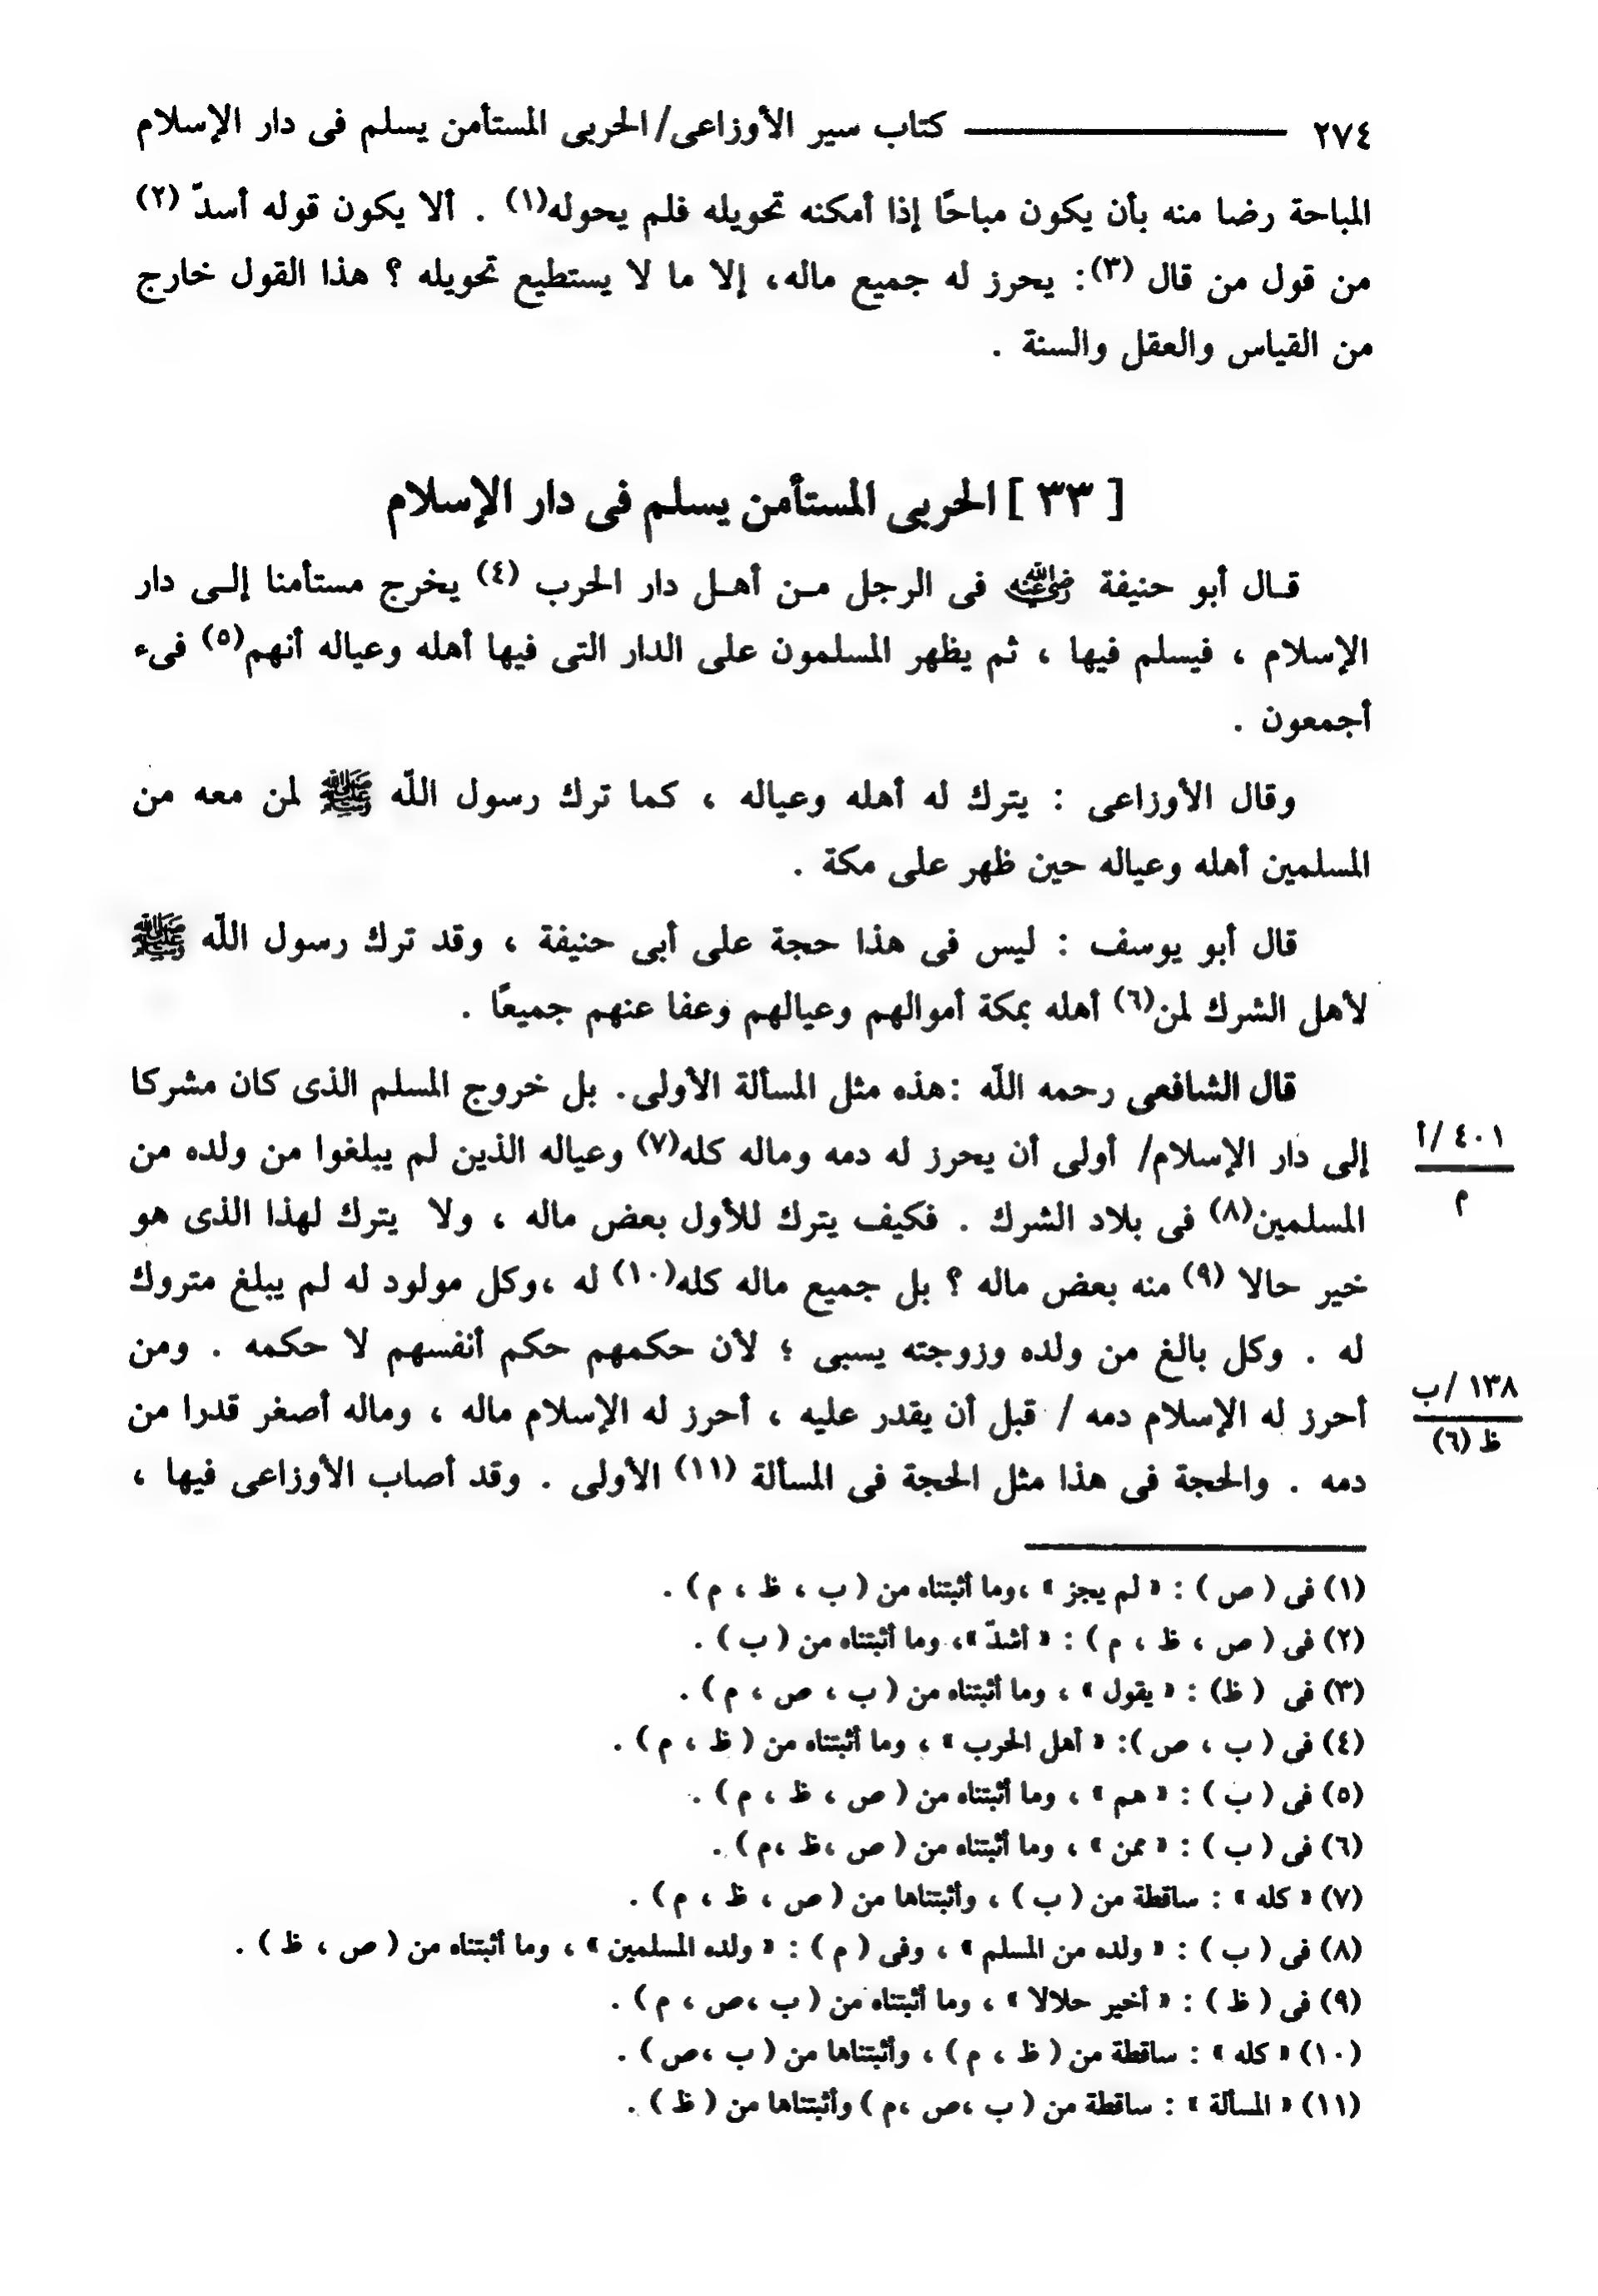 ٢٧٤ كتاب سير الأوزاعى/ الحربى المستأمن يسلم فى دار الإسلام
المباحة رضا منه بأن يكون مباحًا إذا أمكنه تحويله فلم يحوله(١) . ألا يكون قوله أسدّ (٢)
من قول من قال (٣): يحرز له جميع ماله، إلا ما لا يستطيع تحويله ؟ هذا القول خارج
من القياس والعقل والسنة .
[ ٣٣ ] الحربى المستأمن يسلم فى دار الإسلام
قـال أبو حنيفة رضي الله عنه فى الرجل مـن أهـل دار الحرب (٤) يخرج مستأمنا إلـى دار
الإسلام ، فيسلم فيها ، ثم يظهر المسلمون على الدار التى فيها أهله وعياله أنهم(٥) فىء
أجمعون .
وقال الأوزاعى : يترك له أهله وعياله ، كما ترك رسول اللّه ﷺ لمن معه من
المسلمين أهله وعياله حين ظهر على مكة .
قال أبو يوسف : ليس فى هذا حجة على أبى حنيفة ، وقد ترك رسول اللّه ﷺ
لأهل الشرك لمن(٦) أهله بمكة أموالهم وعيالهم وعفا عنهم جميعًا .
قال الشافعى رحمه اللّه :هذه مثل المسألة الأولى. بل خروج المسلم الذى كان مشركا
إلى دار الإسلام/ أولى أن يحرز له دمه وماله كله(٧) وعياله الذين لم يبلغوا من ولده من
٤٠١ /أ
م
المسلمين(٨) فى بلاد الشرك . فكيف يترك للأول بعض ماله ، ولا يترك لهذا الذى هو
خير حالا (٩) منه بعض ماله ؟ بل جميع ماله كله(١٠) له ،وكل مولود له لم يبلغ متروك
له . وكل بالغ من ولده وزوجته يسبى ؛ لأن حكمهم حكم أنفسهم لا حكمه . ومن
أحرز له الإسلام دمه / قبل أن يقدر عليه ، أحرز له الإسلام ماله ، وماله أصغر قدرا من
١٣٨ /ب
ظ (٦)
دمه . والحجة فى هذا مثل الحجة فى المسألة (١١) الأولى . وقد أصاب الأوزاعى فيها ،
(١) فى ( ص ) : « لم يجز » ،وما أثبتناه من ( ب ، ظ ، م ) .
(٢) فى ( ص ، ظ ، م ) : « أشدّ »، وما أثبتناه من ( ب ) .
(٣) فى ( ظ) : « يقول » ، وما أثبتناه من ( ب ، ص ، م ) .
(٤) فى ( ب ، ص ): « أهل الحرب » ، وما أثبتناه من ( ظ ، م ) .
(٥) فى ( ب ) : « هم » ، وما أثبتناه من ( ص ، ظ ، م ) .
(٦) فى ( ب ) : « ممن » ، وما أثبتناه من ( ص ،ظ ،م ) .
(٧) « كله » : ساقطة من ( ب ) ، وأثبتناها من ( ص ، ظ ، م ) .
(٨) فى ( ب ) : « ولده من المسلم » ، وفى ( م ) : « ولده المسلمين » ، وما أثبتناه من ( ص ، ظ ) .
(٩) فى ( ظ ) : « أخير حلالا » ، وما أثبتناه من ( ب ،ص ، م ) .
(١٠) « كله » : ساقطة من ( ظ ، م ) ، وأثبتناها من ( ب ،ص ) .
(١١) « المسألة » : ساقطة من ( ب ،ص ،م ) وأثبتناها من ( ظ ) .